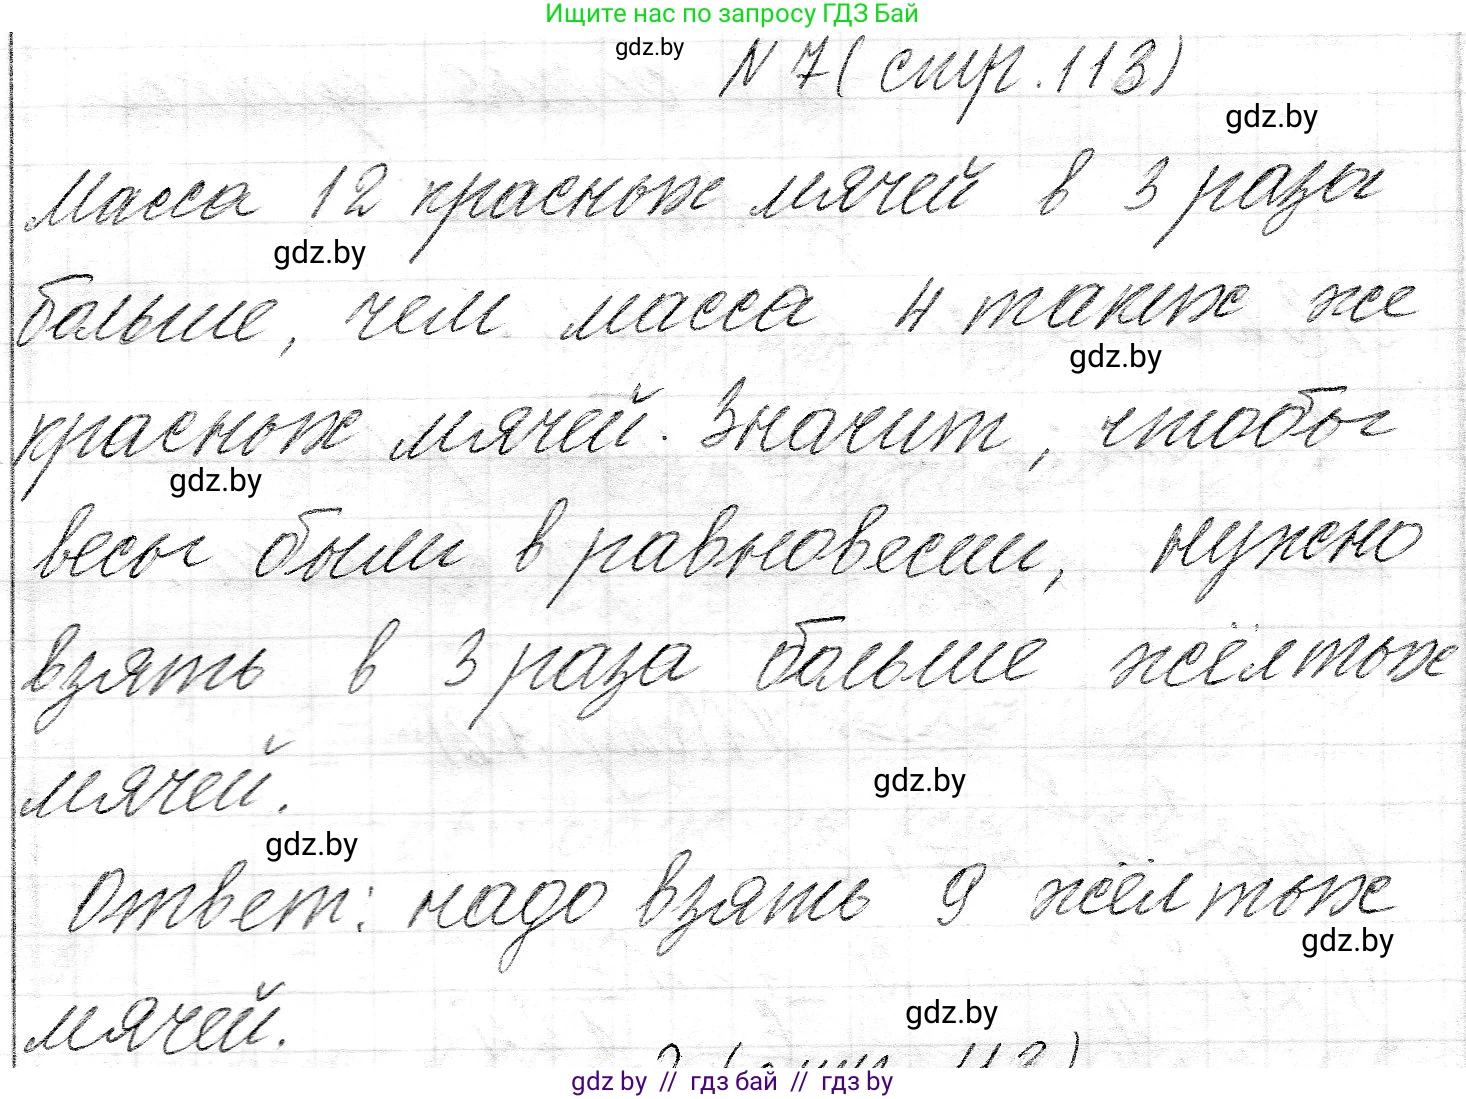 Ищите нас по запросу ГДЗ Бай
gdz.by
N 7 (стр. 113)
gdz.by
Масса 12 красных мячей в 3 раза
gdz.by
больше, чем масса 4 таких же
gdz.by
красных мячей. Значит, чтобы
gdz.by
весы были в равновесии, нужно
взять в 3 раза больше жёлтых
мячей.
gdz.by
gdz.by
Ответ: надо взять 9 жёлтых
gdz.by
мячей.
gdz.by
gdz by // гдз бай // гдз by